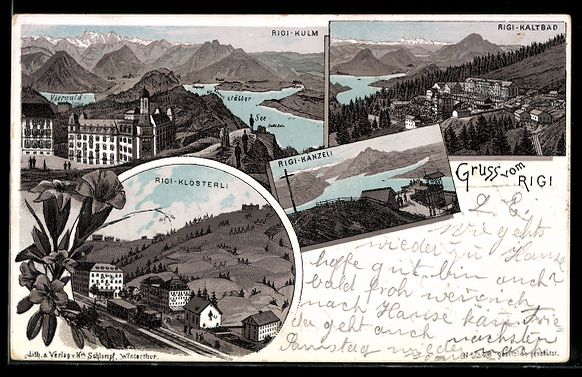 RIGI-KULM
RIGI-KALTBAD
Vierwald-
stätter
See
RIGI-KÄNZELI
Gruss vom
RIGI
RIGI-KLÖSTERLI
L. E.
wie geht's
wieder zu Hause
hoffe gut. bin auch
bald froh wenn ich
nach Hause kann
du geht auch nächsten
Samstag wieder
Lith. & Verlag v. Hch Schlumpf, Winterthur.
gesetzlich geschützt.